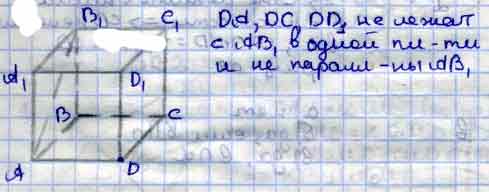 B₁ C₁
DA, DC, DD₁ не лежат
с AB₁ в одной пл-ти
и не паралл-ны AB₁
A₁ D₁
B C
A D